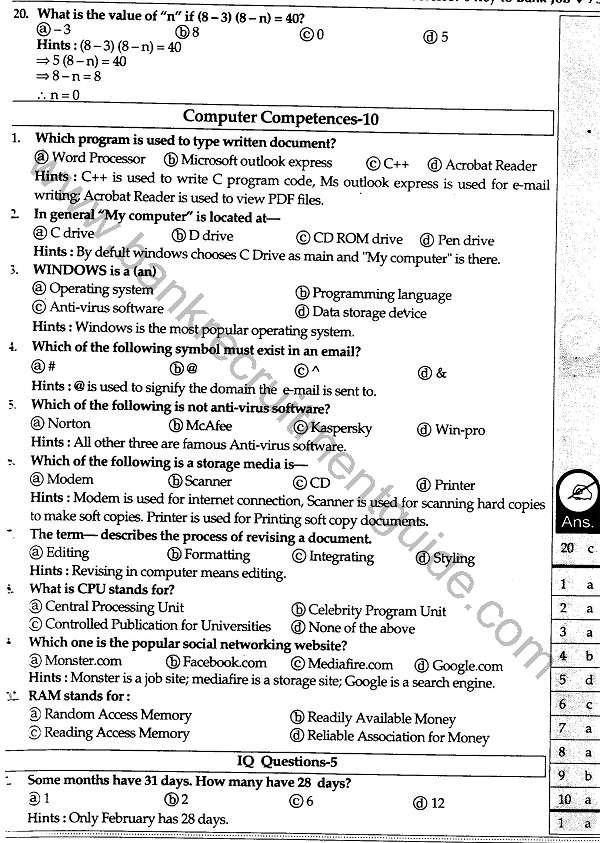 20. What is the value of "n" if (8 – 3) (8 – n) = 40?
ⓐ – 3 ⓑ 8 ⓒ 0 ⓓ 5
Hints : (8 – 3) (8 – n) = 40
⇒ 5 (8 – n) = 40
⇒ 8 – n = 8
∴ n = 0
Computer Competences-10
1. Which program is used to type written document?
ⓐ Word Processor ⓑ Microsoft outlook express ⓒ C++ ⓓ Acrobat Reader
Hints : C++ is used to write C program code, Ms outlook express is used for e-mail
writing; Acrobat Reader is used to view PDF files.
2. In general "My computer" is located at—
ⓐ C drive ⓑ D drive ⓒ CD ROM drive ⓓ Pen drive
Hints : By defult windows chooses C Drive as main and "My computer" is there.
3. WINDOWS is a (an)
ⓐ Operating system ⓑ Programming language
ⓒ Anti-virus software ⓓ Data storage device
Hints : Windows is the most popular operating system.
4. Which of the following symbol must exist in an email?
ⓐ # ⓑ @ ⓒ ^ ⓓ &
Hints : @ is used to signify the domain the e-mail is sent to.
5. Which of the following is not anti-virus software?
ⓐ Norton ⓑ McAfee ⓒ Kaspersky ⓓ Win-pro
Hints : All other three are famous Anti-virus software.
Which of the following is a storage media is—
ⓐ Modem ⓑ Scanner ⓒ CD ⓓ Printer
Hints : Modem is used for internet connection, Scanner is used for scanning hard copies
to make soft copies. Printer is used for Printing soft copy documents.
The term— describes the process of revising a document.
ⓐ Editing ⓑ Formatting ⓒ Integrating ⓓ Styling
Hints : Revising in computer means editing.
What is CPU stands for?
ⓐ Central Processing Unit ⓑ Celebrity Program Unit
ⓒ Controlled Publication for Universities ⓓ None of the above
Which one is the popular social networking website?
ⓐ Monster.com ⓑ Facebook.com ⓒ Mediafire.com ⓓ Google.com
Hints : Monster is a job site; mediafire is a storage site; Google is a search engine.
RAM stands for :
ⓐ Random Access Memory ⓑ Readily Available Money
ⓒ Reading Access Memory ⓓ Reliable Association for Money
IQ Questions-5
Some months have 31 days. How many have 28 days?
ⓐ 1 ⓑ 2 ⓒ 6 ⓓ 12
Hints : Only February has 28 days.
Ans.
20 c
1 a
2 a
3 a
4 b
5 d
6 c
7 a
8 a
9 b
10 a
1 a
www.bankrecruitmentguide.com